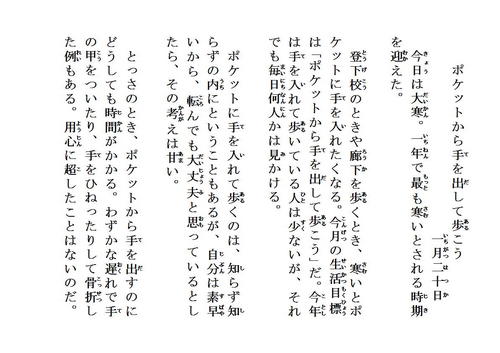 ポケットから手を出して歩こう
一月二十日
今日は大寒。一年で最も寒いとされる時期
を迎えた。
登下校のときや廊下を歩くとき、寒いとポ
ケットに手を入れたくなる。今月の生活目標
は「ポケットから手を出して歩こう」だ。今年
は手を入れて歩いている人は少ないが、それ
でも毎日何人かは見かける。
ポケットに手を入れて歩くのは、知らず知
らずの内にということもあるが、自分は素早
いから、転んでも大丈夫と思っているとし
たら、その考えは甘い。
とっさのとき、ポケットから手を出すのに
どうしても時間がかかる。わずかな遅れで手
の甲をついたり、手をひねったりして骨折し
た例もある。用心に超したことはないのだ。